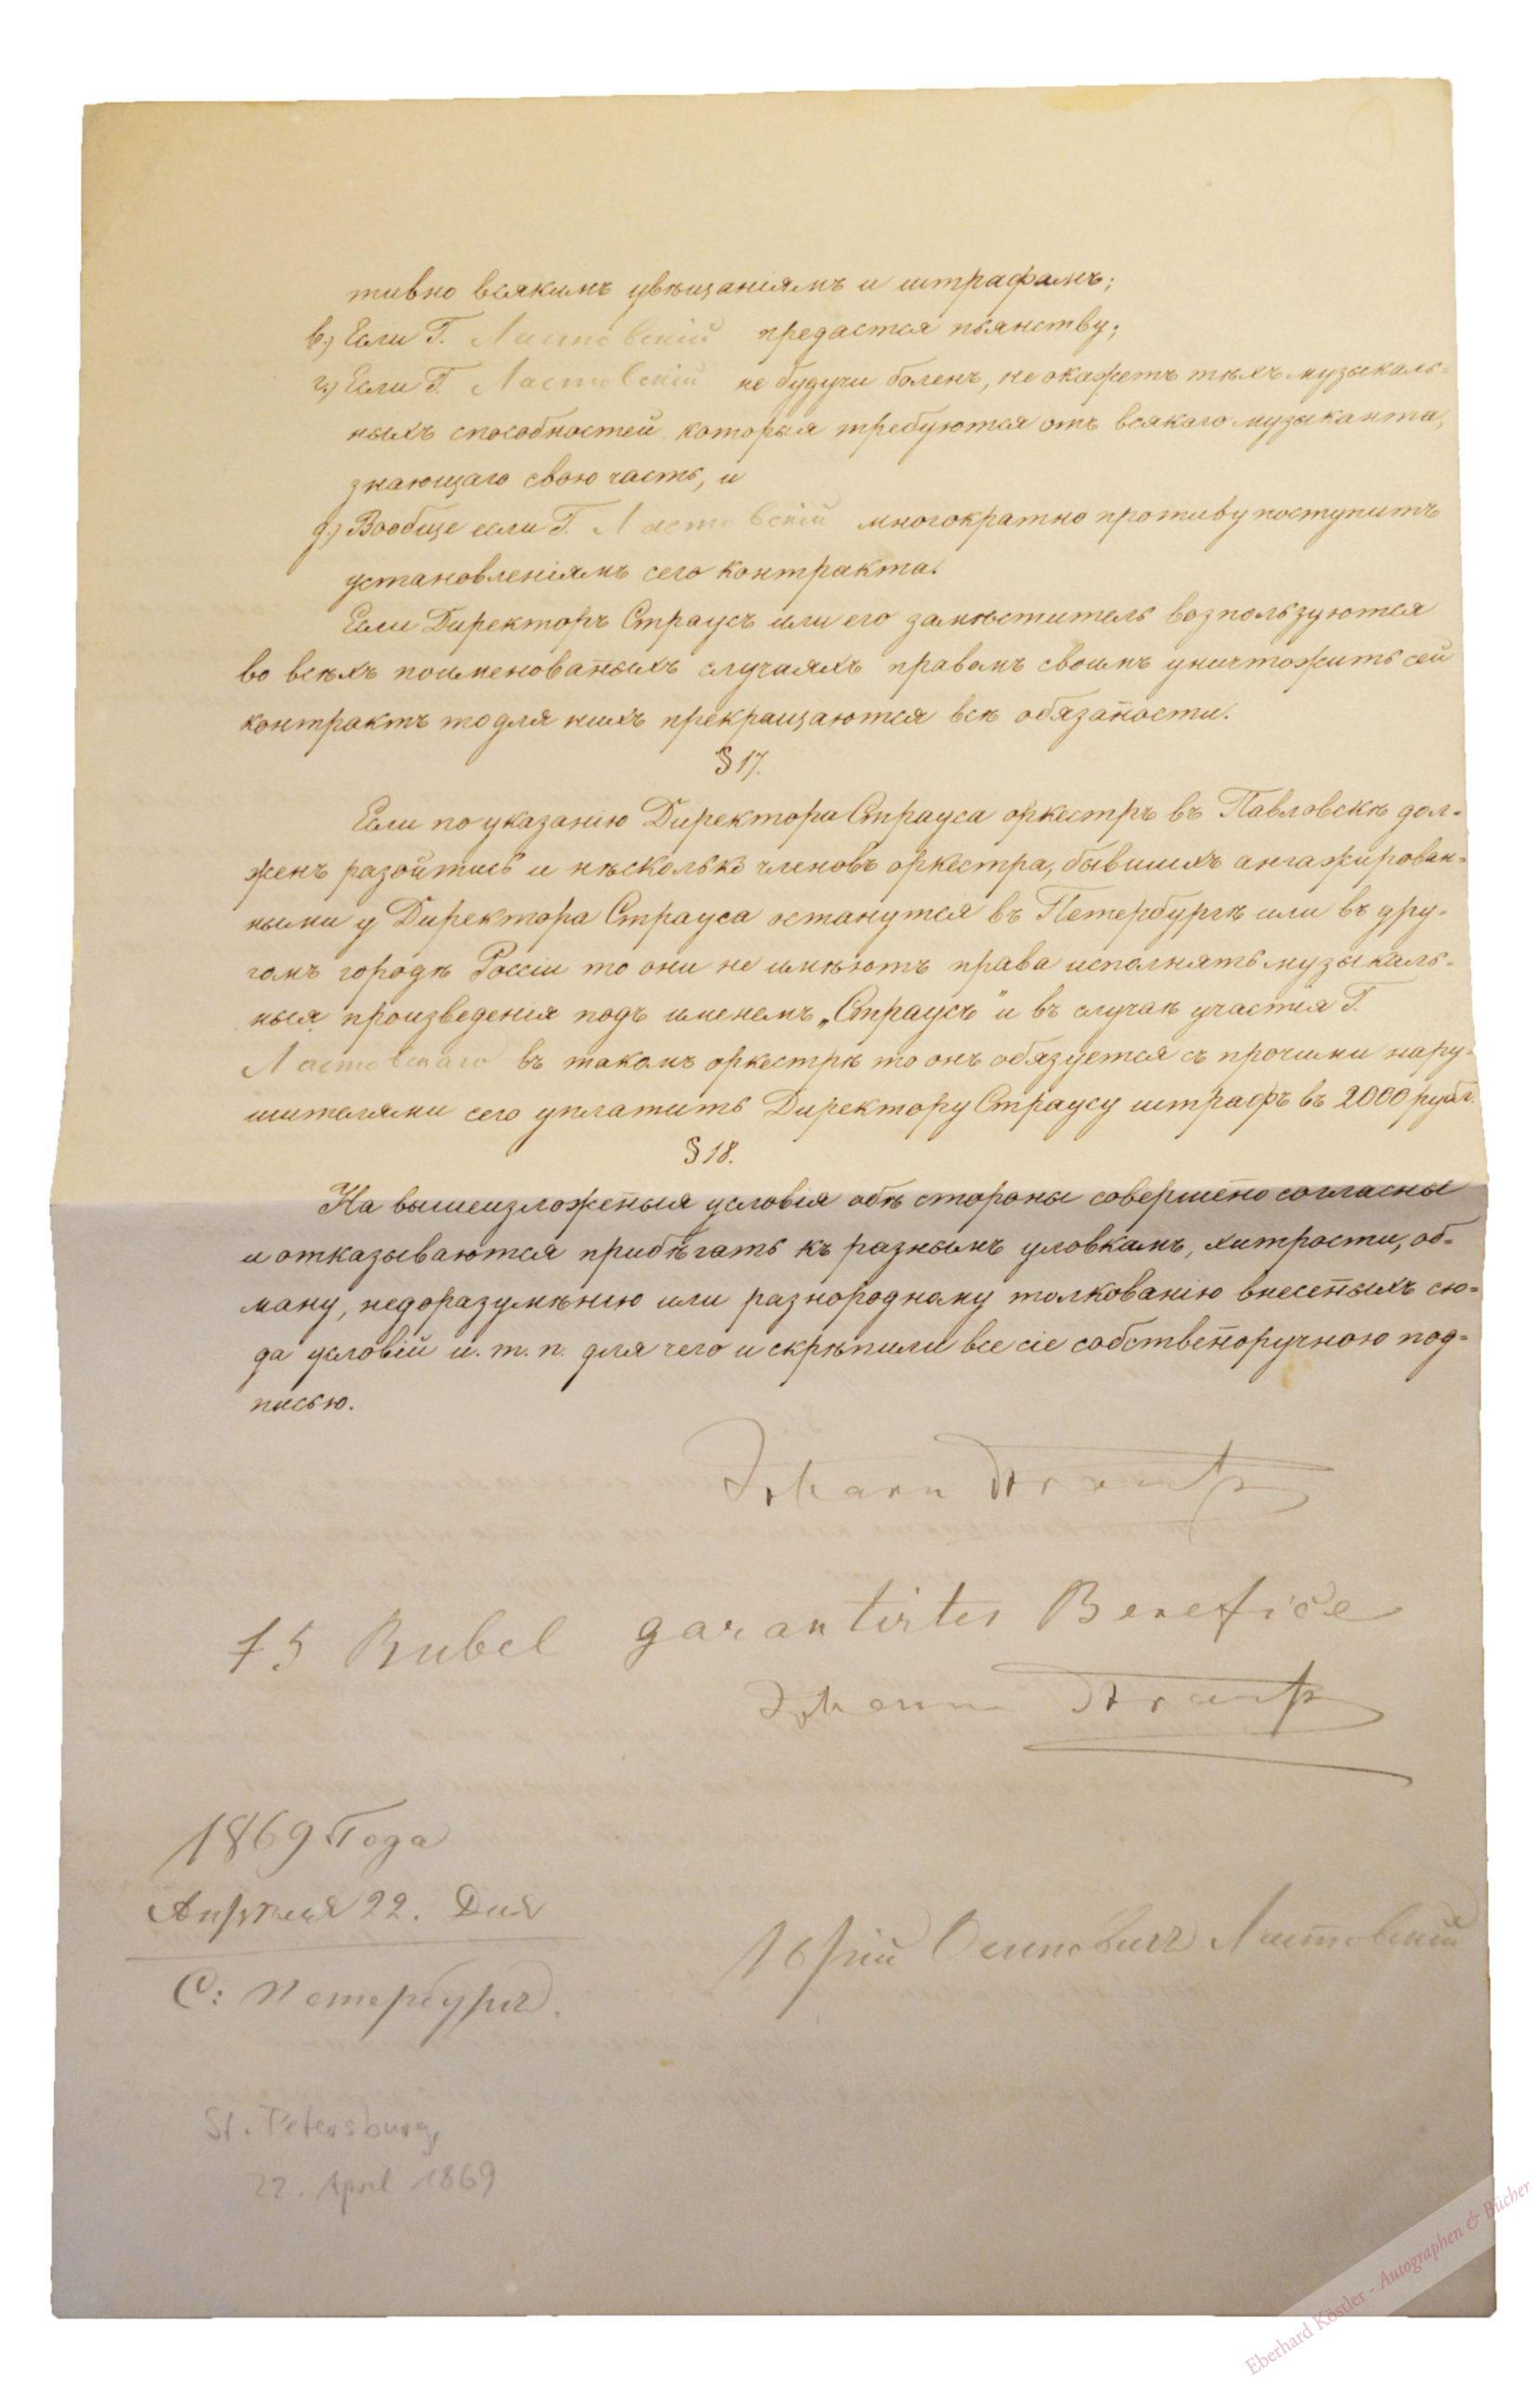 тивно всякимъ увѣщаніямъ и штрафамъ;
в.) Если Г. Ластовскій предастся пьянству;
г.) Если Г. Ластовскій не будучи боленъ, не окажетъ тѣхъ музыкаль=
ныхъ способностей которыя требуются отъ всякаго музыканта,
знающаго свою часть, и
д.) Вообще если Г. Ластовскій многократно противу поступитъ
установленіямъ сего контракта.
Если Директоръ Страусъ или его замѣститель возпользуются
во всѣхъ поименован̅ыхъ случаяхъ правомъ своимъ уничтожить сей
контрактъ то для нихъ прекращаются всѣ обязан̅ости.
§ 17.
Если по указанію Директора Страуса оркестръ въ Павловскѣ дол=
женъ разойтись и нѣсколько членовъ оркестра, бывшихъ ангажирован=
ными у Директора Страуса останутся въ Петербургѣ или въ дру=
гомъ городѣ Россіи то они не имѣютъ права исполнять музыкаль=
ныя произведенія подъ именемъ „Страусъ" и въ случаѣ участія Г.
Ластовскаго въ такомъ оркестрѣ то онъ обязуется съ прочими нару=
шителями сего уплатить Директору Страусу штрафъ въ 2000 рубл.
§ 18.
На вышеизложен̅ыя условія обѣ стороны совершен̅о согласны
и отказываются прибѣгать къ разнымъ уловкамъ, хитрости, об=
ману, недоразумѣнію или разнородному толкованію внесен̅ыхъ сю=
да условій и. т. п. для чего и скрѣпили все сіе собствен̅оручною под=
писью.
Johann Strauß
75 Rubel garantirtes Benefice
Johann Strauß
1869 Года
Апрѣля 22. Дня
С: Петербургъ.
Юрій Осиповичъ Ластовскій
St. Petersburg,
22. April 1869
Eberhard Köstler - Autographen & Bücher